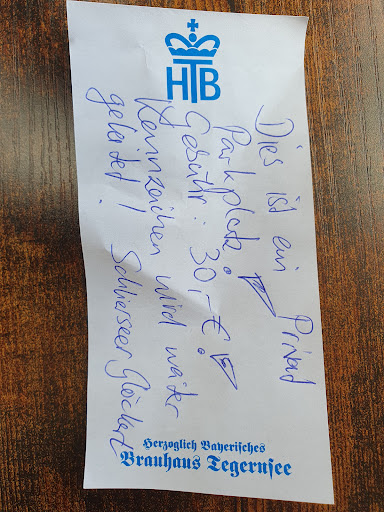 HTB
Dies ist ein Privat
Parkplatz!
Gebühr: 30,-€!
Kennzeichen wird weiter
geleitet! Schlierseer
Herzoglich Bayerisches
Brauhaus Tegernsee